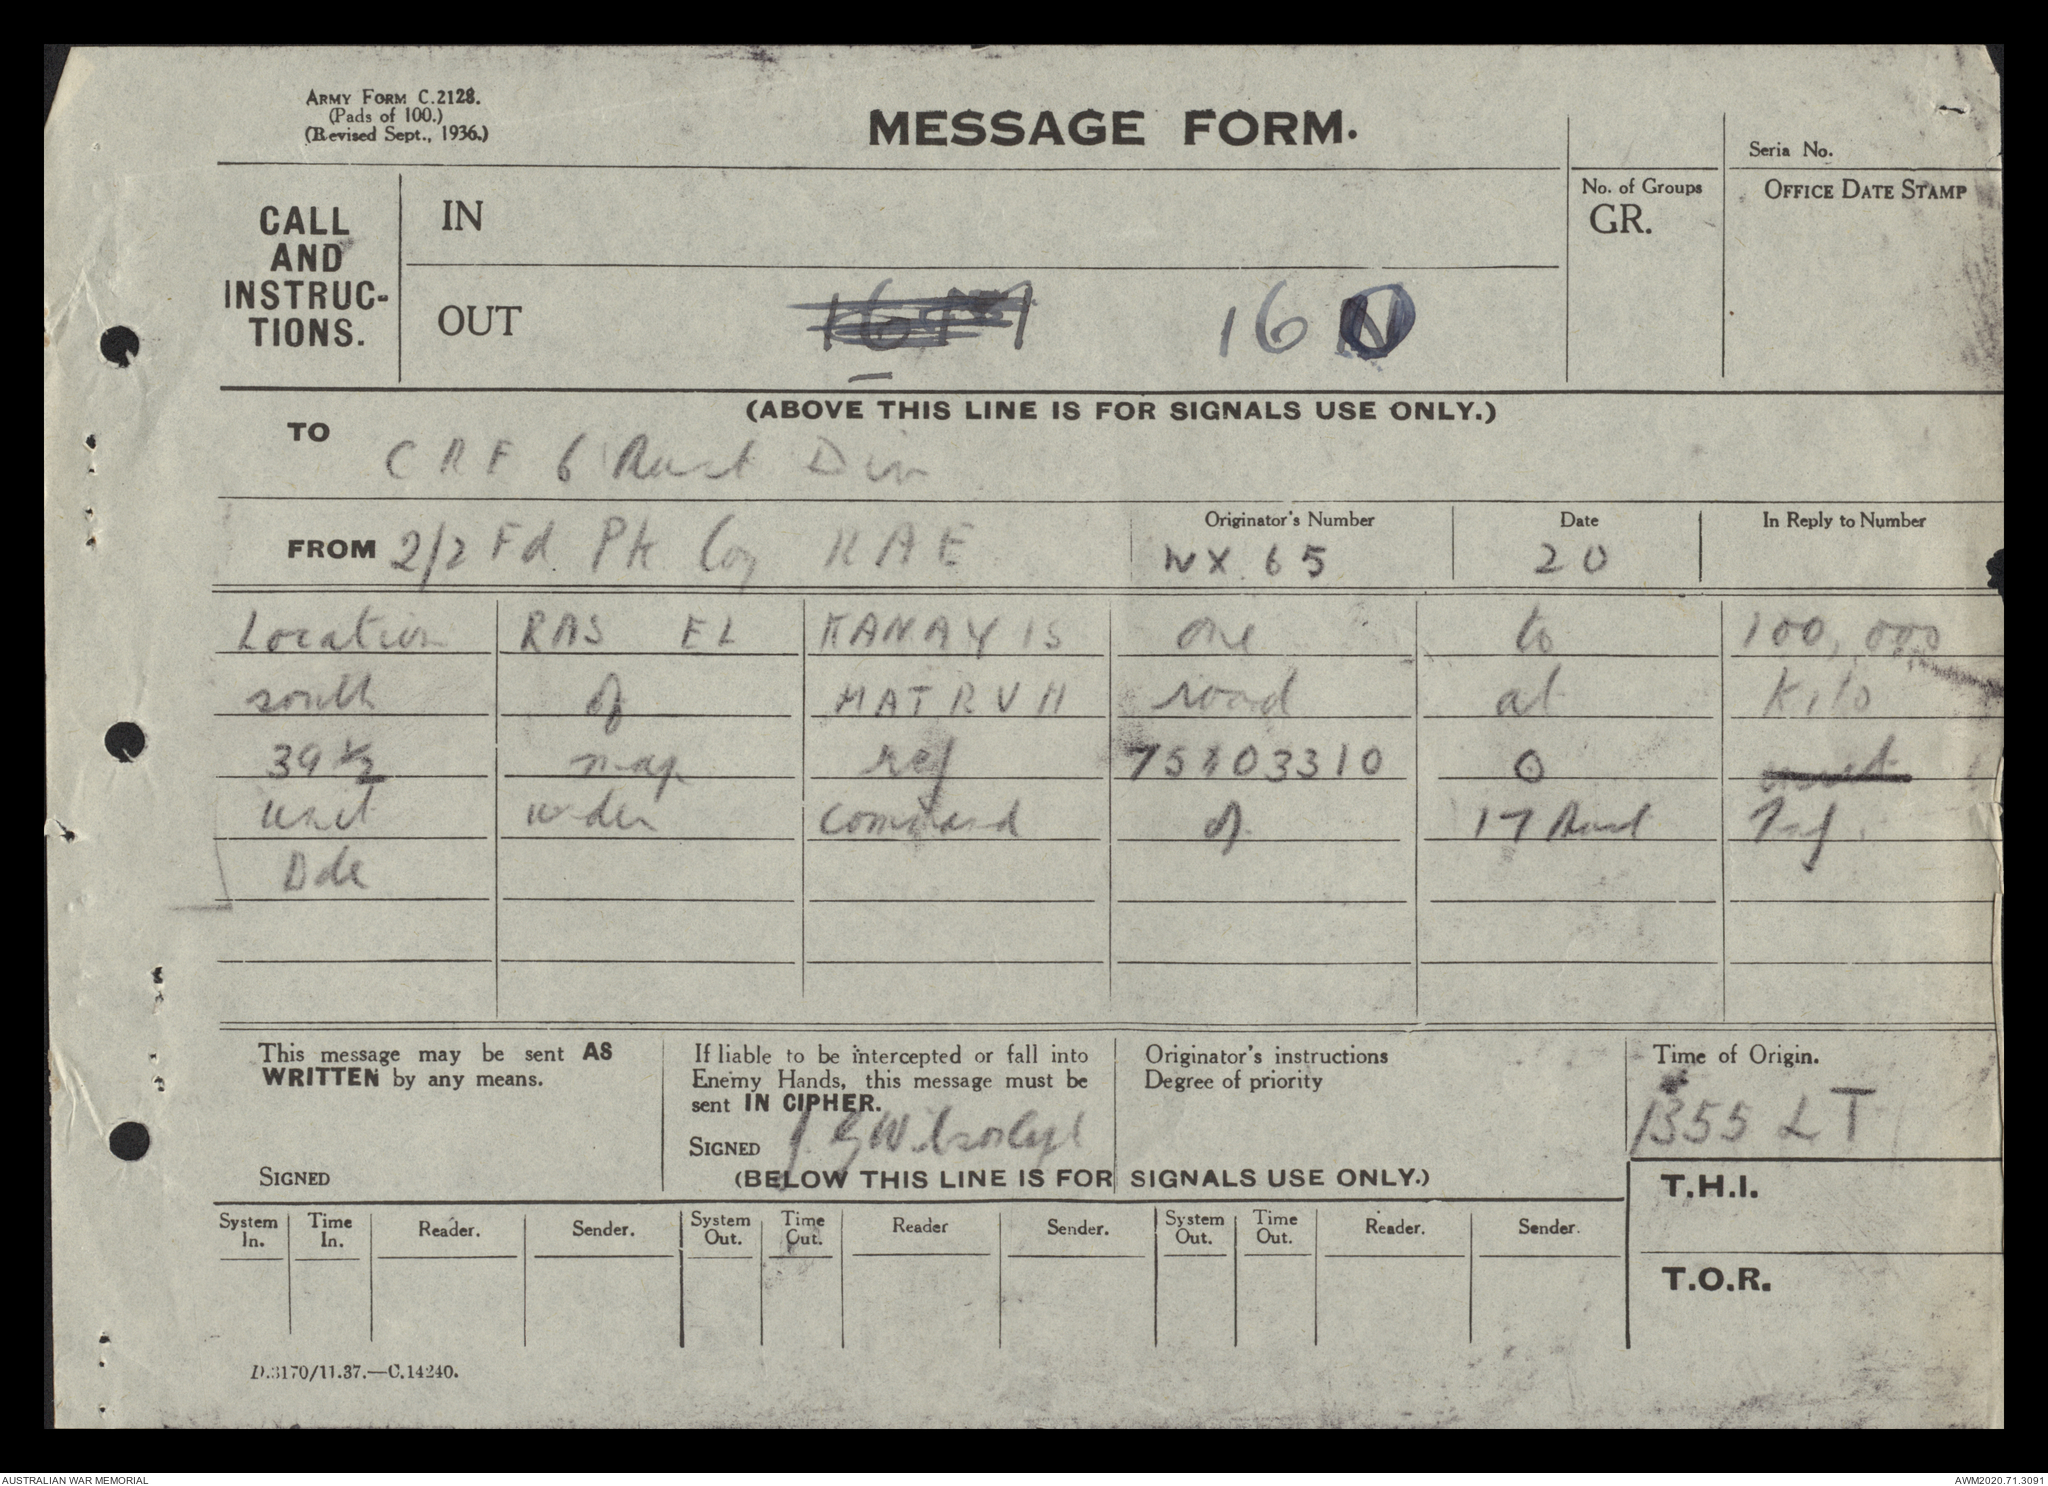 ARMY FORM C.2128.
(Pads of 100.)
(Revised Sept., 1936.)
MESSAGE FORM.
Seria No.
CALL AND INSTRUC- TIONS.
IN
No. of Groups
GR.
OFFICE DATE STAMP
OUT 16
(ABOVE THIS LINE IS FOR SIGNALS USE ONLY.)
TO CRE 6 Aust Div
FROM 2/2 Fd Pk Coy RAE
Originator's Number WX 65
Date 20
In Reply to Number
Location RAS EL KANAYIS one to 100,000
south of MATRUH road at Kilo
39 1/2 map ref O
unit under command of 17 Aust Inf.
Bde
This message may be sent AS
WRITTEN by any means.
SIGNED
If liable to be intercepted or fall into
Enemy Hands, this message must be
sent IN CIPHER.
SIGNED J G Wilson Capt
Originator's instructions
Degree of priority
Time of Origin.
1355 LT
(BELOW THIS LINE IS FOR SIGNALS USE ONLY.)
T.H.I.
System In. Time In. Reader. Sender. System Out. Time Out. Reader Sender. System Out. Time Out. Reader. Sender.
T.O.R.
D.3170/11.37.—C.14240.
AUSTRALIAN WAR MEMORIAL
AWM2020.71.3091